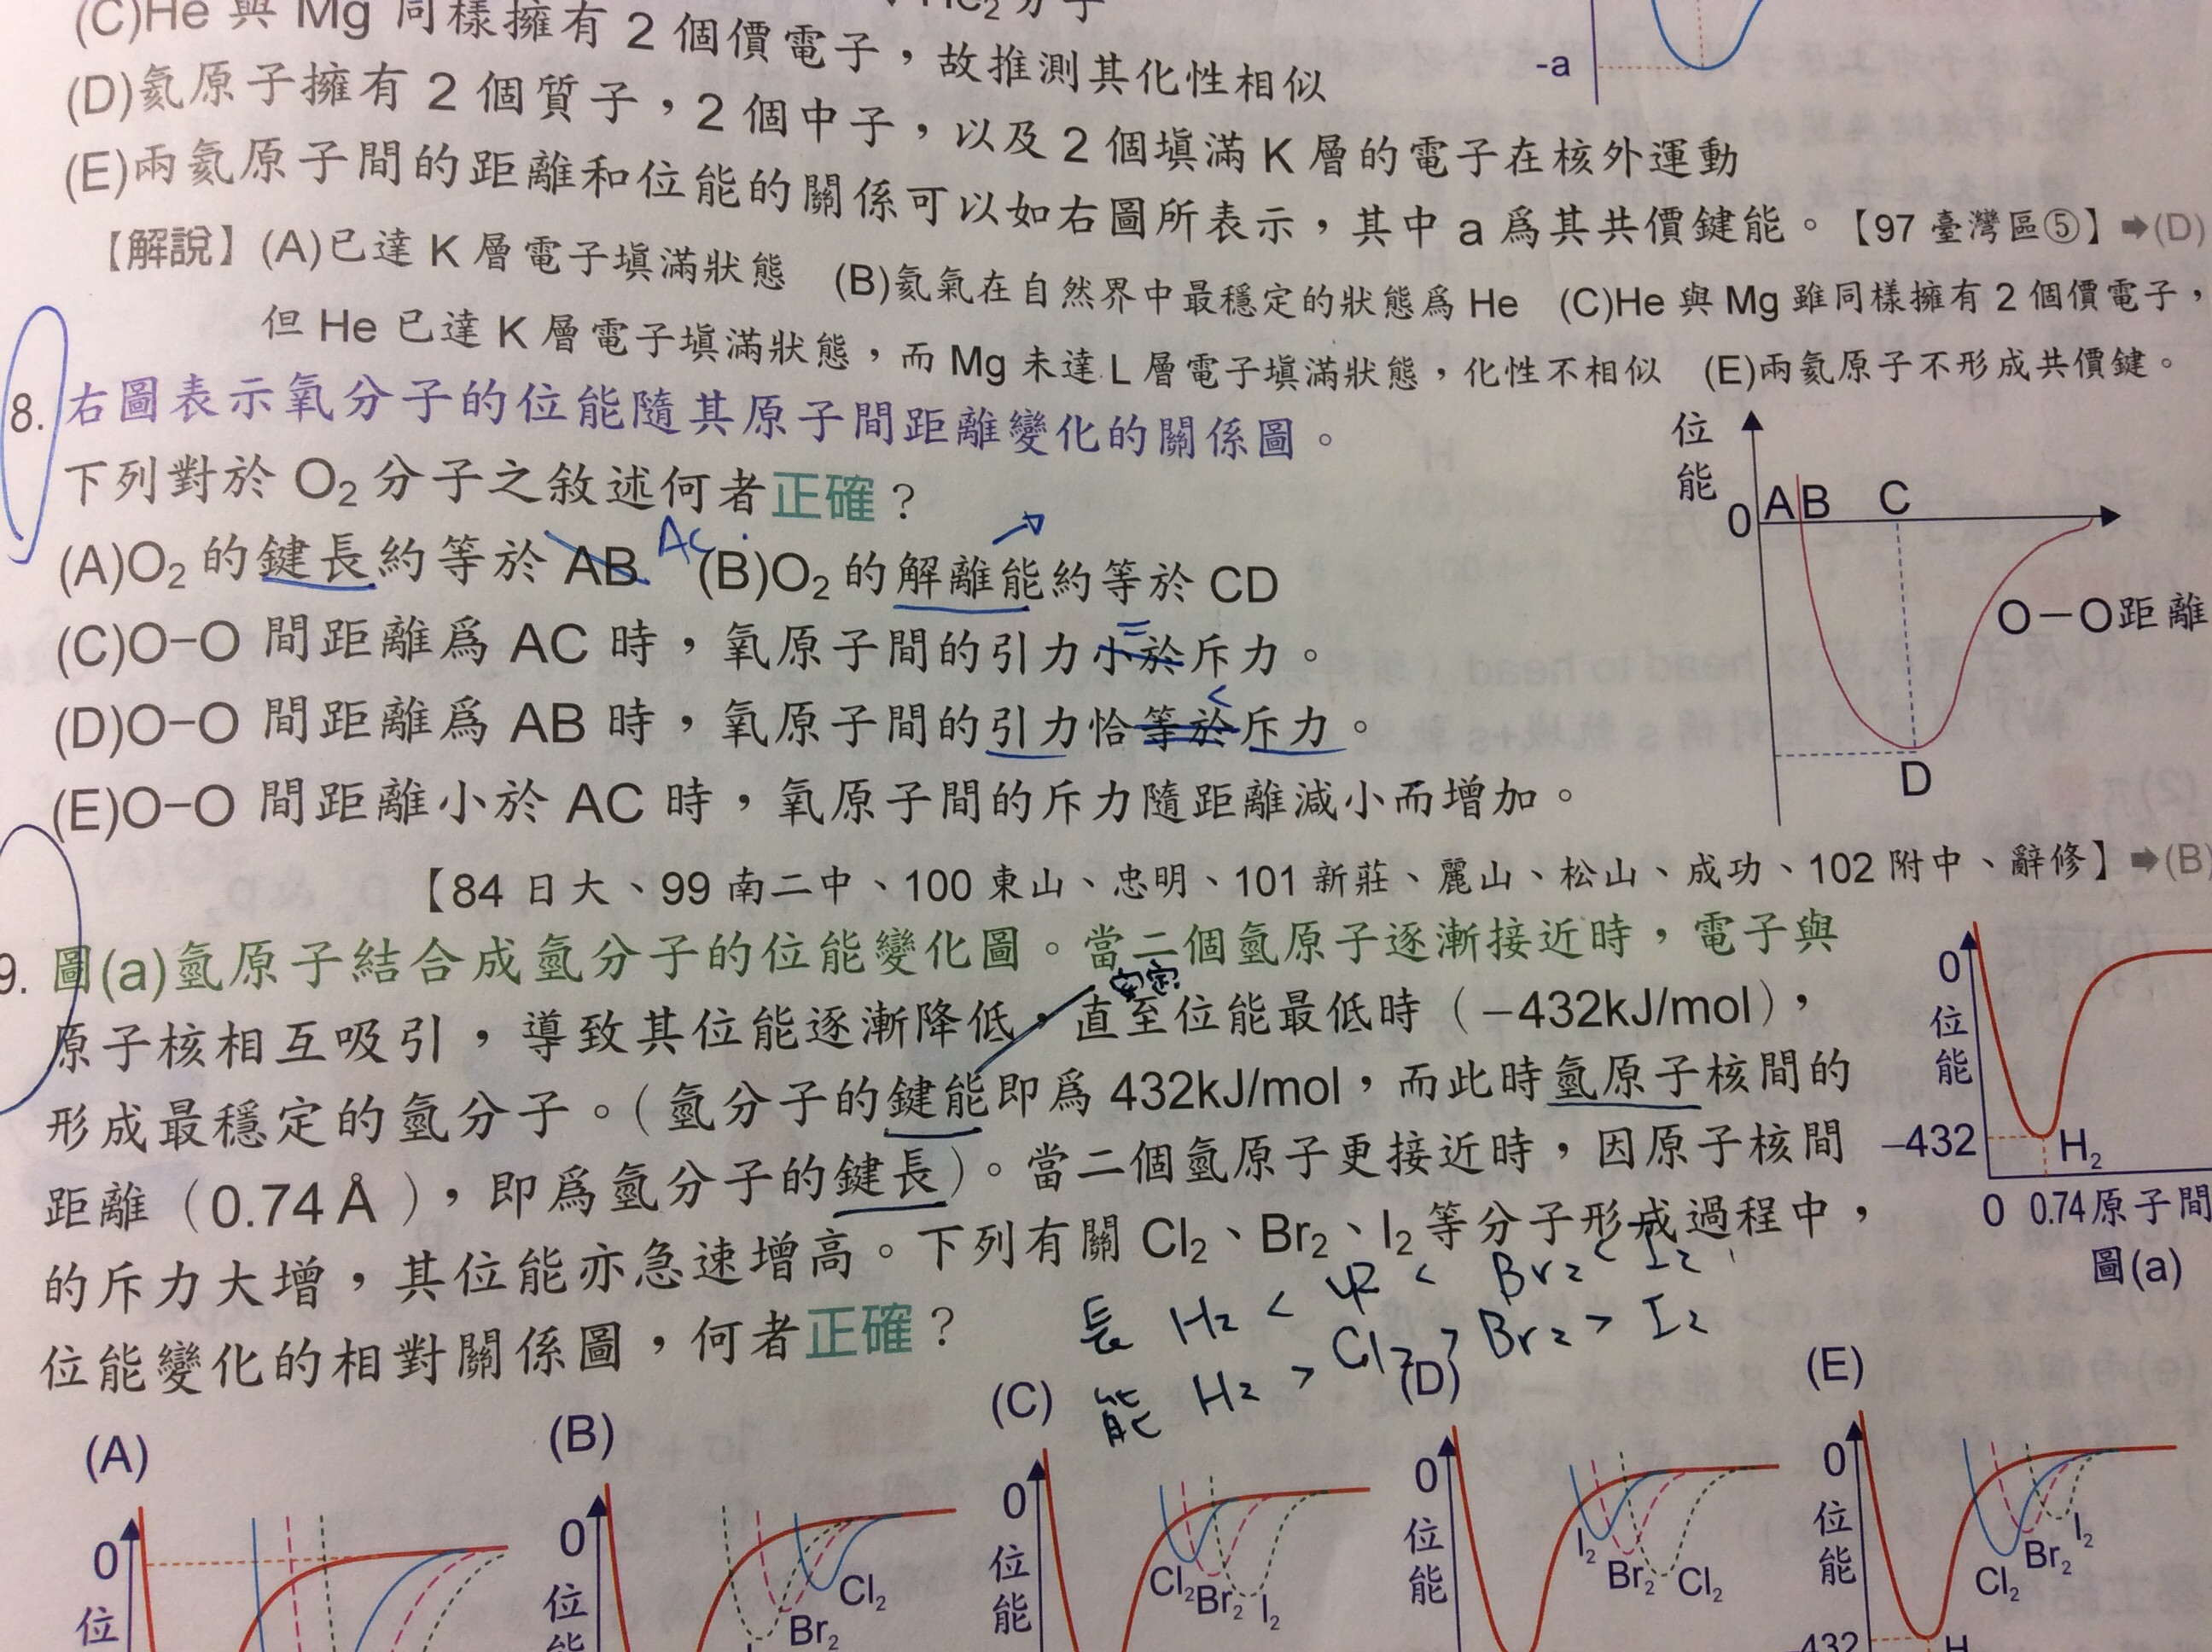 (C)He 與 Mg 同樣擁有 2 個價電子，故推測其化性相似
(D)氦原子擁有 2 個質子，2 個中子，以及 2 個填滿 K 層的電子在核外運動
(E)兩氦原子間的距離和位能的關係可以如右圖所表示，其中 a 爲其共價鍵能。【97 臺灣區⑤】➡(D)
-a
【解說】(A)已達 K 層電子填滿狀態　(B)氦氣在自然界中最穩定的狀態爲 He　(C)He 與 Mg 雖同樣擁有 2 個價電子，
但 He 已達 K 層電子填滿狀態，而 Mg 未達 L 層電子填滿狀態，化性不相似　(E)兩氦原子不形成共價鍵。
8. 右圖表示氧分子的位能隨其原子間距離變化的關係圖。
下列對於 O₂ 分子之敘述何者正確？
(A)O₂ 的鍵長約等於 AB AC (B)O₂ 的解離能約等於 CD
(C)O−O 間距離爲 AC 時，氧原子間的引力小於斥力。
=
(D)O−O 間距離爲 AB 時，氧原子間的引力恰等於斥力。
<
(E)O−O 間距離小於 AC 時，氧原子間的斥力隨距離減小而增加。
【84 日大、99 南二中、100 東山、忠明、101 新莊、麗山、松山、成功、102 附中、辭修】➡(B)
位能
0 A B C
O−O距離
D
9. 圖(a)氫原子結合成氫分子的位能變化圖。當二個氫原子逐漸接近時，電子與
原子核相互吸引，導致其位能逐漸降低，直至位能最低時（−432kJ/mol），
安定
形成最穩定的氫分子。（氫分子的鍵能即爲 432kJ/mol，而此時氫原子核間的
距離（0.74Å），即爲氫分子的鍵長）。當二個氫原子更接近時，因原子核間
的斥力大增，其位能亦急速增高。下列有關 Cl₂、Br₂、I₂ 等分子形成過程中，
位能變化的相對關係圖，何者正確？
0
位能
−432 H₂
0 0.74 原子間
圖(a)
長 H₂ < < Br₂ < I₂
能 H₂ > Cl₂ > Br₂ > I₂
(A)
0
位
(B)
0
位能
Br₂ Cl₂
(C)
0
位能
Cl₂ Br₂ I₂
(D)
0
位能
I₂ Br₂ Cl₂
(E)
0
位能
Cl₂ Br₂ I₂
−432 H